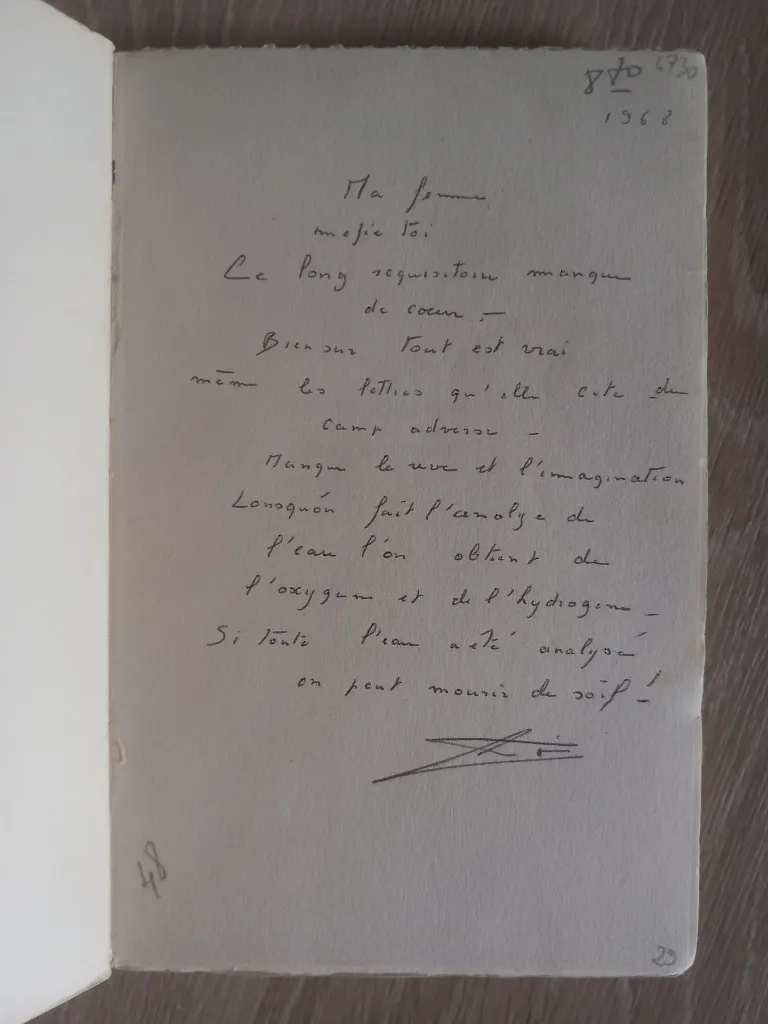 870 4730
1968
Ma femme
mefie toi
Ce long requisitoire manque
de coeur –
Bien sur tout est vrai
même les lettres qu'elle cite du
camp adverse –
Manque le reve et l'immagination
Lorsqu'on fait l'analyse de
l'eau l'on obtient de
l'oxygene et de l'hydrogene –
Si toute l'eau a été analysé
on peut mourir de soif !
48
29